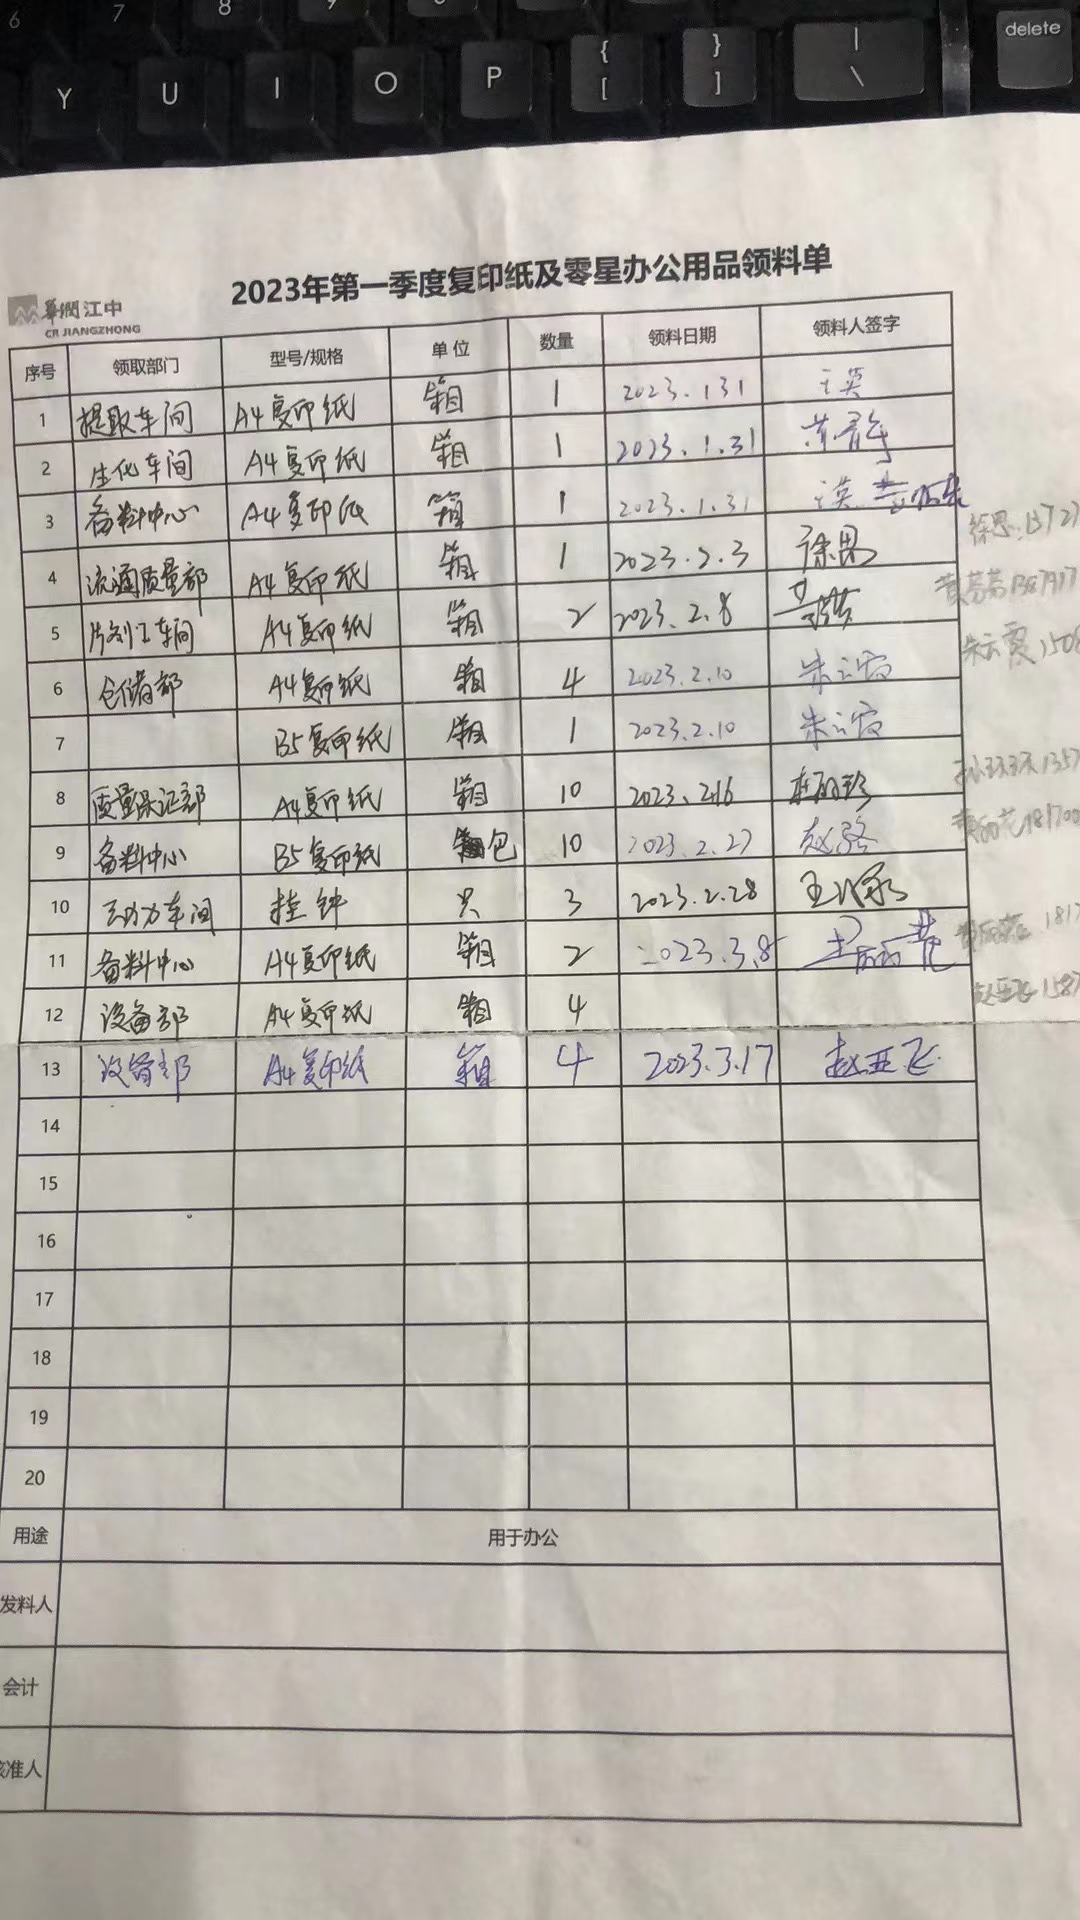 6 7 8 9
Y U I O P { [ } ] | \ delete
2023年第一季度复印纸及零星办公用品领料单
華潤江中
CR JIANGZHONG
序号 领取部门 型号/规格 单位 数量 领料日期 领料人签字
1 提取车间 A4复印纸 箱 1 2023.1.31 王英
2 生化车间 A4复印纸 箱 1 2023.1.31
3 备料中心 A4复印纸 箱 1 2023.1.31 王英
4 流通质量部 A4复印纸 箱 1 2023.2.3 徐思 徐思 1372
5 片剂工车间 A4复印纸 箱 2 2023.2.8 黄芬芳 1387917
6 仓储部 A4复印纸 箱 4 2023.2.10 朱云霞 朱云霞 1508
7 B5复印纸 箱 1 2023.2.10 朱云霞
8 质量保证部 A4复印纸 箱 10 2023.2.16 1357
9 备料中心 B5复印纸 包 10 2023.2.27 181700
10 动力车间 挂钟 只 3 2023.2.28
11 备料中心 A4复印纸 箱 2 2023.3.8 1817
12 设备部 A4复印纸 箱 4 赵亚飞 1587
13 设备部 A4复印纸 箱 4 2023.3.17 赵亚飞
14
15
16
17
18
19
20
用途 用于办公
发料人
会计
准人